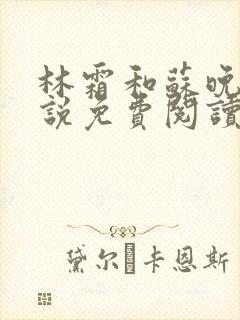 林霜和蘇晚
說免費閱讀
黛尔·卡恩斯